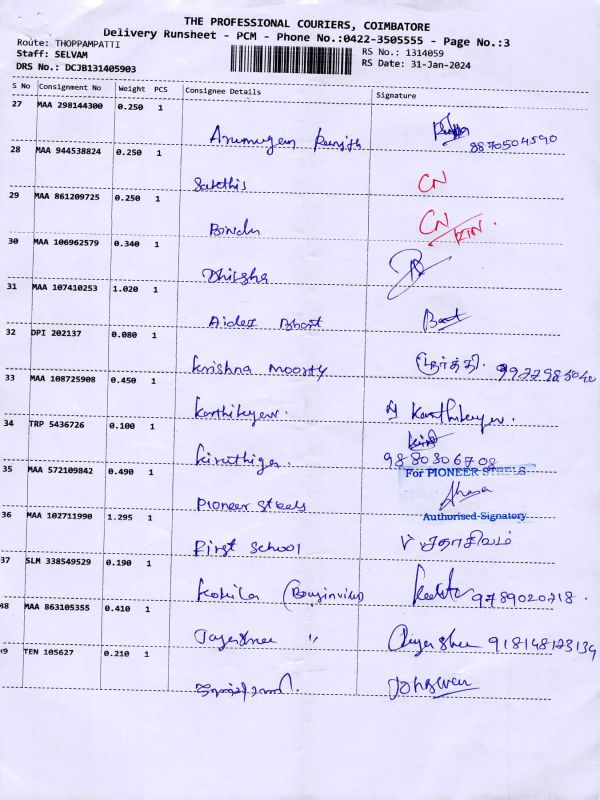 THE PROFESSIONAL COURIERS, COIMBATORE
Delivery Runsheet - PCM - Phone No.:0422-3505555 - Page No.:3
Route: THOPPAMPATTI
Staff: SELVAM
DRS No.: DCJB131405903
RS No.: 1314059
RS Date: 31-Jan-2024
S No Consignment No Weight PCS Consignee Details Signature
27 MAA 298144300 0.250 1
Arumugam Ranjith 8870504590
28 MAA 944538824 0.250 1
Sakthis CN
29 MAA 861209725 0.250 1
Bindu CN RTN.
30 MAA 106962579 0.340 1
Dhilsha
31 MAA 107410253 1.020 1
Bhart
32 DPI 202137 0.080 1
Krishna Moorty மூர்த்தி.
33 MAA 108725908 0.450 1
Karthikeyan. Karthikeyan.
34 TRP 5436726 0.100 1
Kiruthiga. 9880306708
35 MAA 572109842 0.490 1
For PIONEER STEELS
Pioneer Steels
Authorised Signatory
36 MAA 102711990 1.295 1
First School V சதாசிவம்
37 SLM 338549529 0.190 1
Kokila 9789020718.
48 MAA 863105355 0.410 1
Jayashree " Jayashree 918148123139
49 TEN 105627 0.210 1